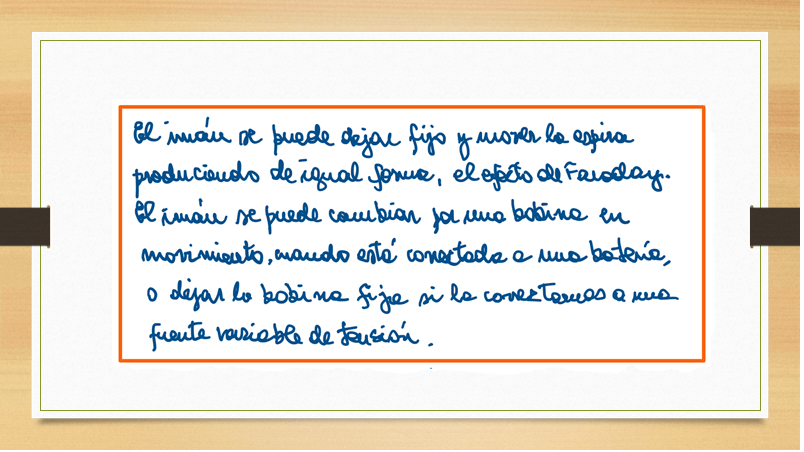 El imán se puede dejar fijo y mover la espira
produciendo de igual forma, el efecto de Faraday.
El imán se puede cambiar por una bobina en
movimiento, cuando está conectada a una batería,
o dejar la bobina fija si la conectamos a una
fuente variable de tensión.